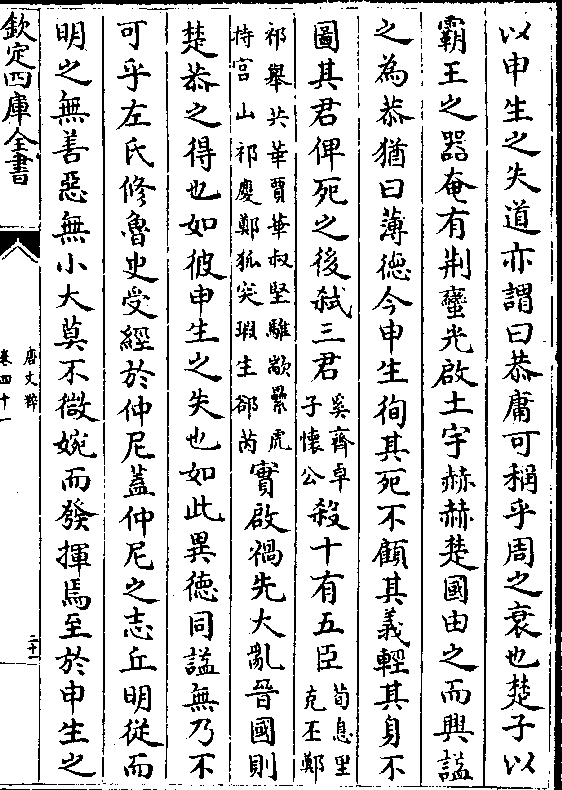 以申生之失道亦謂曰恭庸可稱乎周之衰也楚子以
霸王之器奄有荆蠻光啟土宇赫赫楚國由之而興謚
之為恭猶曰薄德今申生徇其死不顧其義輕其身不
圖其君俾死之後弑三君奚齊卓子懷公殺十有五臣荀息里克丕鄭
祁舉共華賈華叔堅騅歂纍虎特宫山祁慶鄭狐突瑕生郤芮實啟禍先大亂晉國則
楚恭之得也如彼申生之失也如此異德同謚無乃不
可乎左氏修魯史受經於仲尼蓋仲尼之志丘明從而
明之無善惡無小大莫不微婉而發揮焉至於申生之
欽定四庫全書
唐文粹
卷四十一